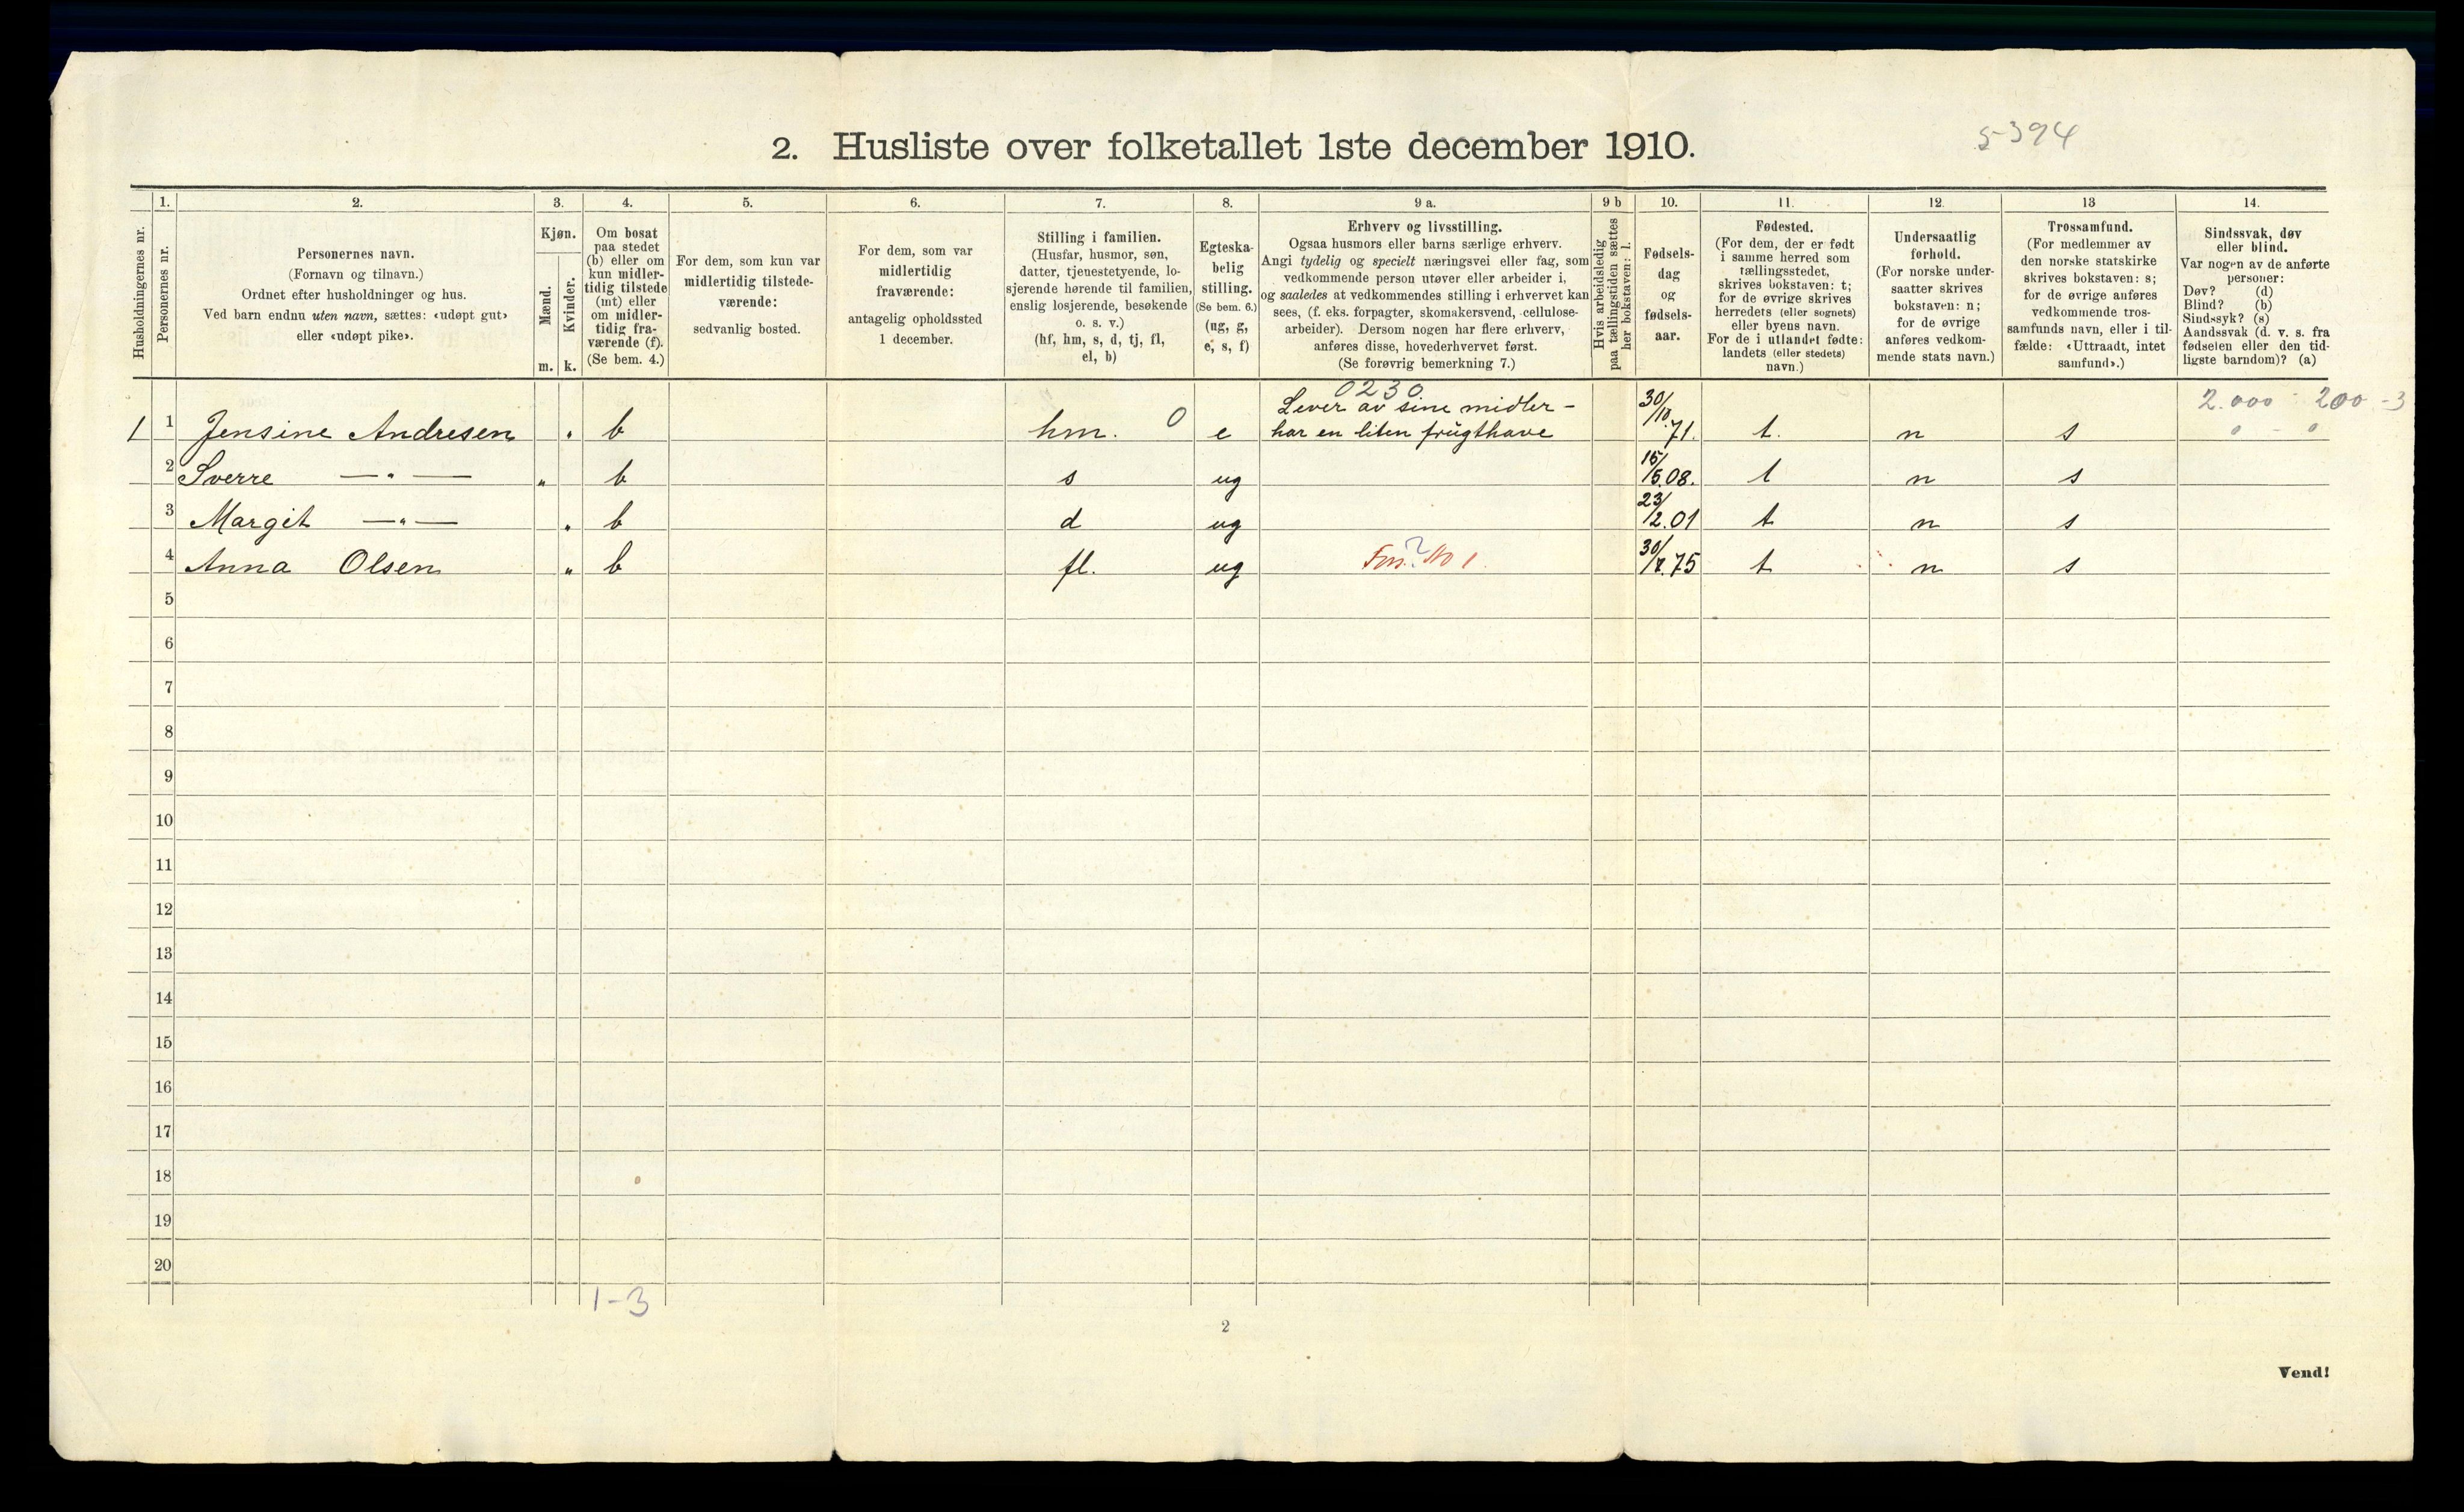 2. Husliste over folketallet 1ste december 1910.
5394
Husholdningernes nr.
1.
Personernes nr.
2.
Personernes navn.
(Fornavn og tilnavn.)
Ordnet efter husholdninger og hus.
Ved barn endnu uten navn, sættes: «udøpt gut»
eller «udøpt pike».
3.
Kjøn.
Mænd.
Kvinder.
m. k.
4.
Om bosat
paa stedet
(b) eller om
kun midler-
tidig tilstede
(mt) eller
om midler-
tidig fra-
værende (f).
(Se bem. 4.)
5.
For dem, som kun var
midlertidig tilstede-
værende:
sedvanlig bosted.
6.
For dem, som var
midlertidig
fraværende:
antagelig opholdssted
1 december.
7.
Stilling i familien.
(Husfar, husmor, søn,
datter, tjenestetyende, lo-
sjerende hørende til familien,
enslig losjerende, besøkende
o. s. v.)
(hf, hm, s, d, tj, fl,
el, b)
8.
Egteska-
belig
stilling.
(Se bem. 6.)
(ug, g,
e, s, f)
9 a.
Erhverv og livsstilling.
Ogsaa husmors eller barns særlige erhverv.
Angi tydelig og specielt næringsvei eller fag, som
vedkommende person utøver eller arbeider i,
og saaledes at vedkommendes stilling i erhvervet kan
sees, (f. eks. forpagter, skomakersvend, cellulose-
arbeider). Dersom nogen har flere erhverv,
anføres disse, hovederhvervet først.
(Se forøvrig bemerkning 7.)
9 b
Hvis arbeidsledig
paa tællingstiden sættes
her bokstaven: l.
10.
Fødsels-
dag
og
fødsels-
aar.
11.
Fødested.
(For dem, der er født
i samme herred som
tællingsstedet,
skrives bokstaven: t;
for de øvrige skrives
herredets (eller sognets)
eller byens navn.
For de i utlandet fødte:
landets (eller stedets)
navn.)
12.
Undersaatlig
forhold.
(For norske under-
saatter skrives
bokstaven: n;
for de øvrige
anføres vedkom-
mende stats navn.)
13
Trossamfund.
(For medlemmer av
den norske statskirke
skrives bokstaven: s;
for de øvrige anføres
vedkommende tros-
samfunds navn, eller i til-
fælde: «Uttraadt, intet
samfund».)
14.
Sindssvak, døv
eller blind.
Var nogen av de anførte
personer:
Døv? (d)
Blind? (b)
Sindssyk? (s)
Aandssvak (d. v. s. fra
fødselen eller den tid-
ligste barndom)? (a)
0230
Lever av sine midler - 2.000 - 200 - 3
1 1 Jensine Andresen " b hm. 0 e har en liten frugthave 30/10 71. t. n s 0 - 0
2 Sverre —"— " b s ug 15/5.08. t n s
3 Margit —"— " b d ug 23/2.01 t n s
4 Anna Olsen " b fl. ug 30/7.75 t n s
5
6
7
8
9
10
11
12
13
14
15
16
17
18
19
20
1-3
2
Vend!